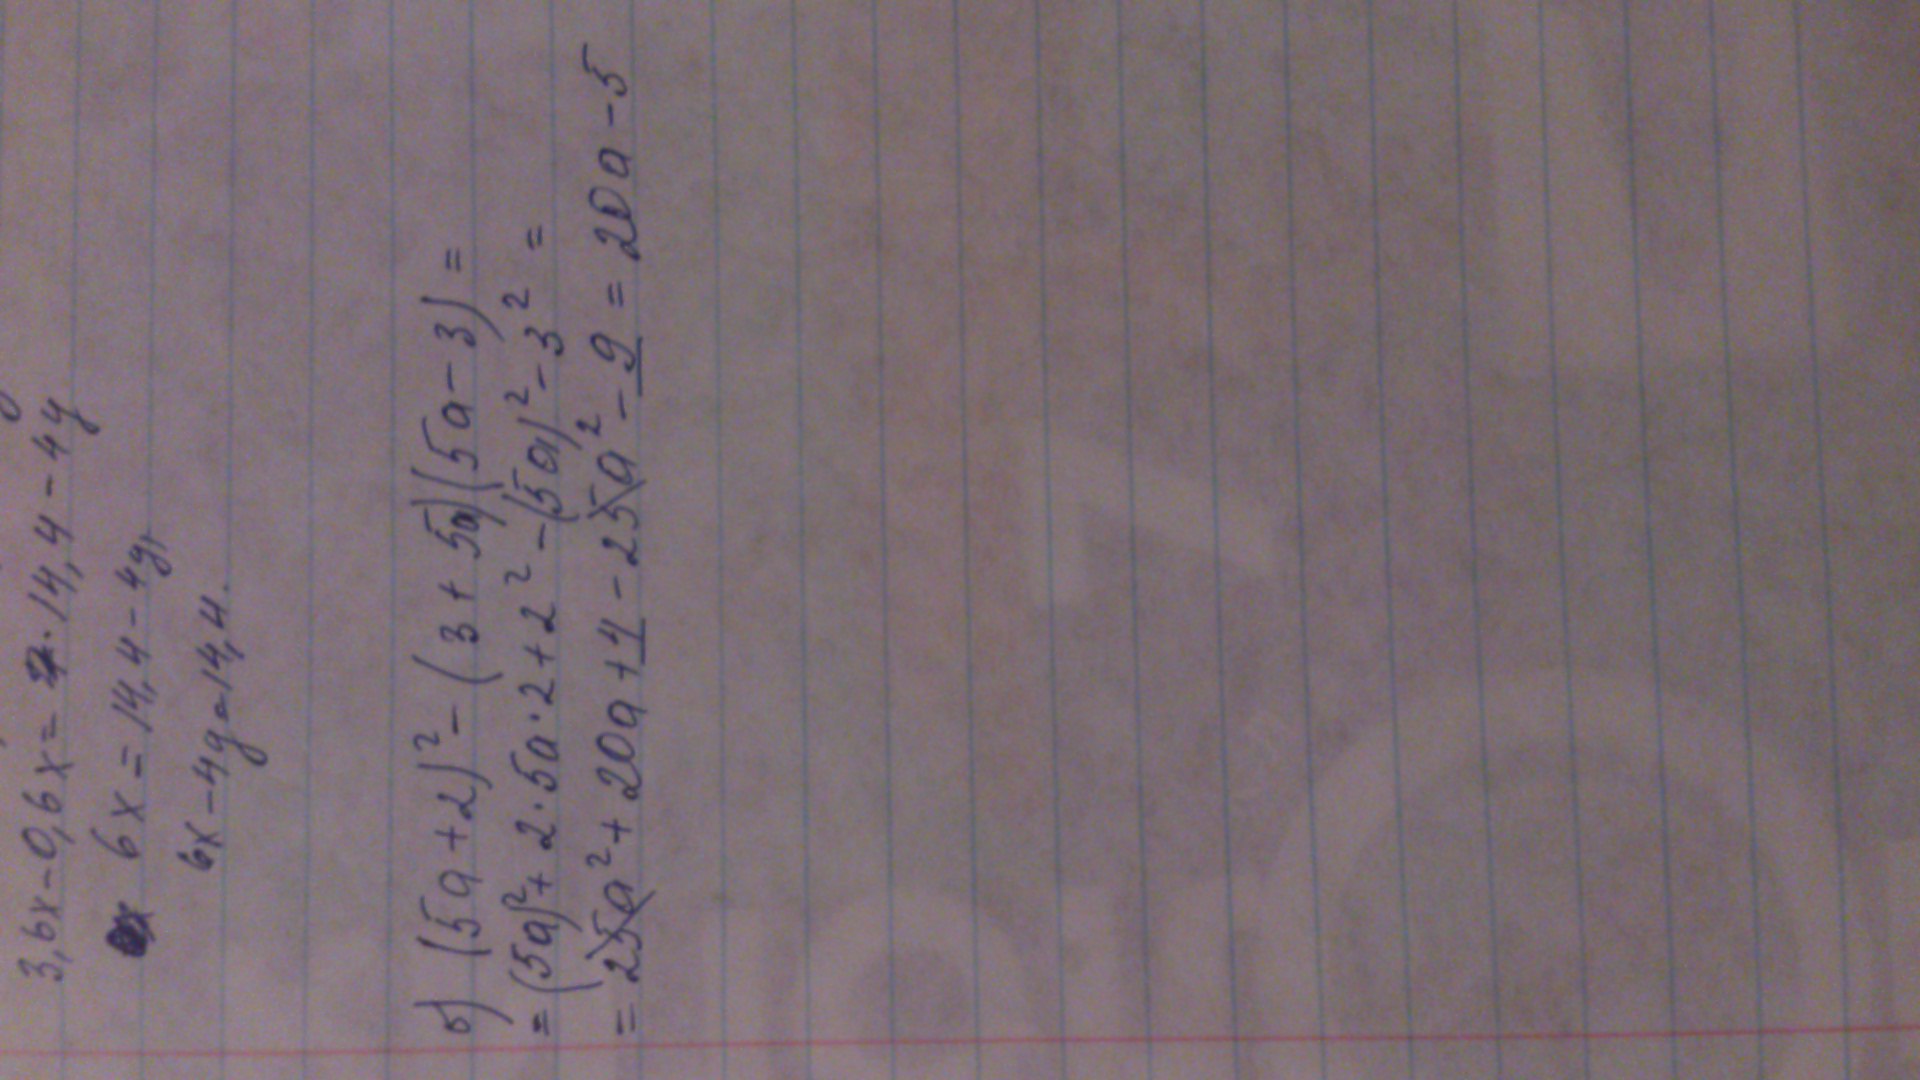 3,6x-0,6x= · 14,4-4y
6x = 14,4-4y,
6x-4y=14,4.
б) (5a+2)²-(3+5a)(5a-3)=
=(5a)²+2·5a·2+2²-(5a)²-3²=
=25a²+20a+4-25a²-9=20a-5